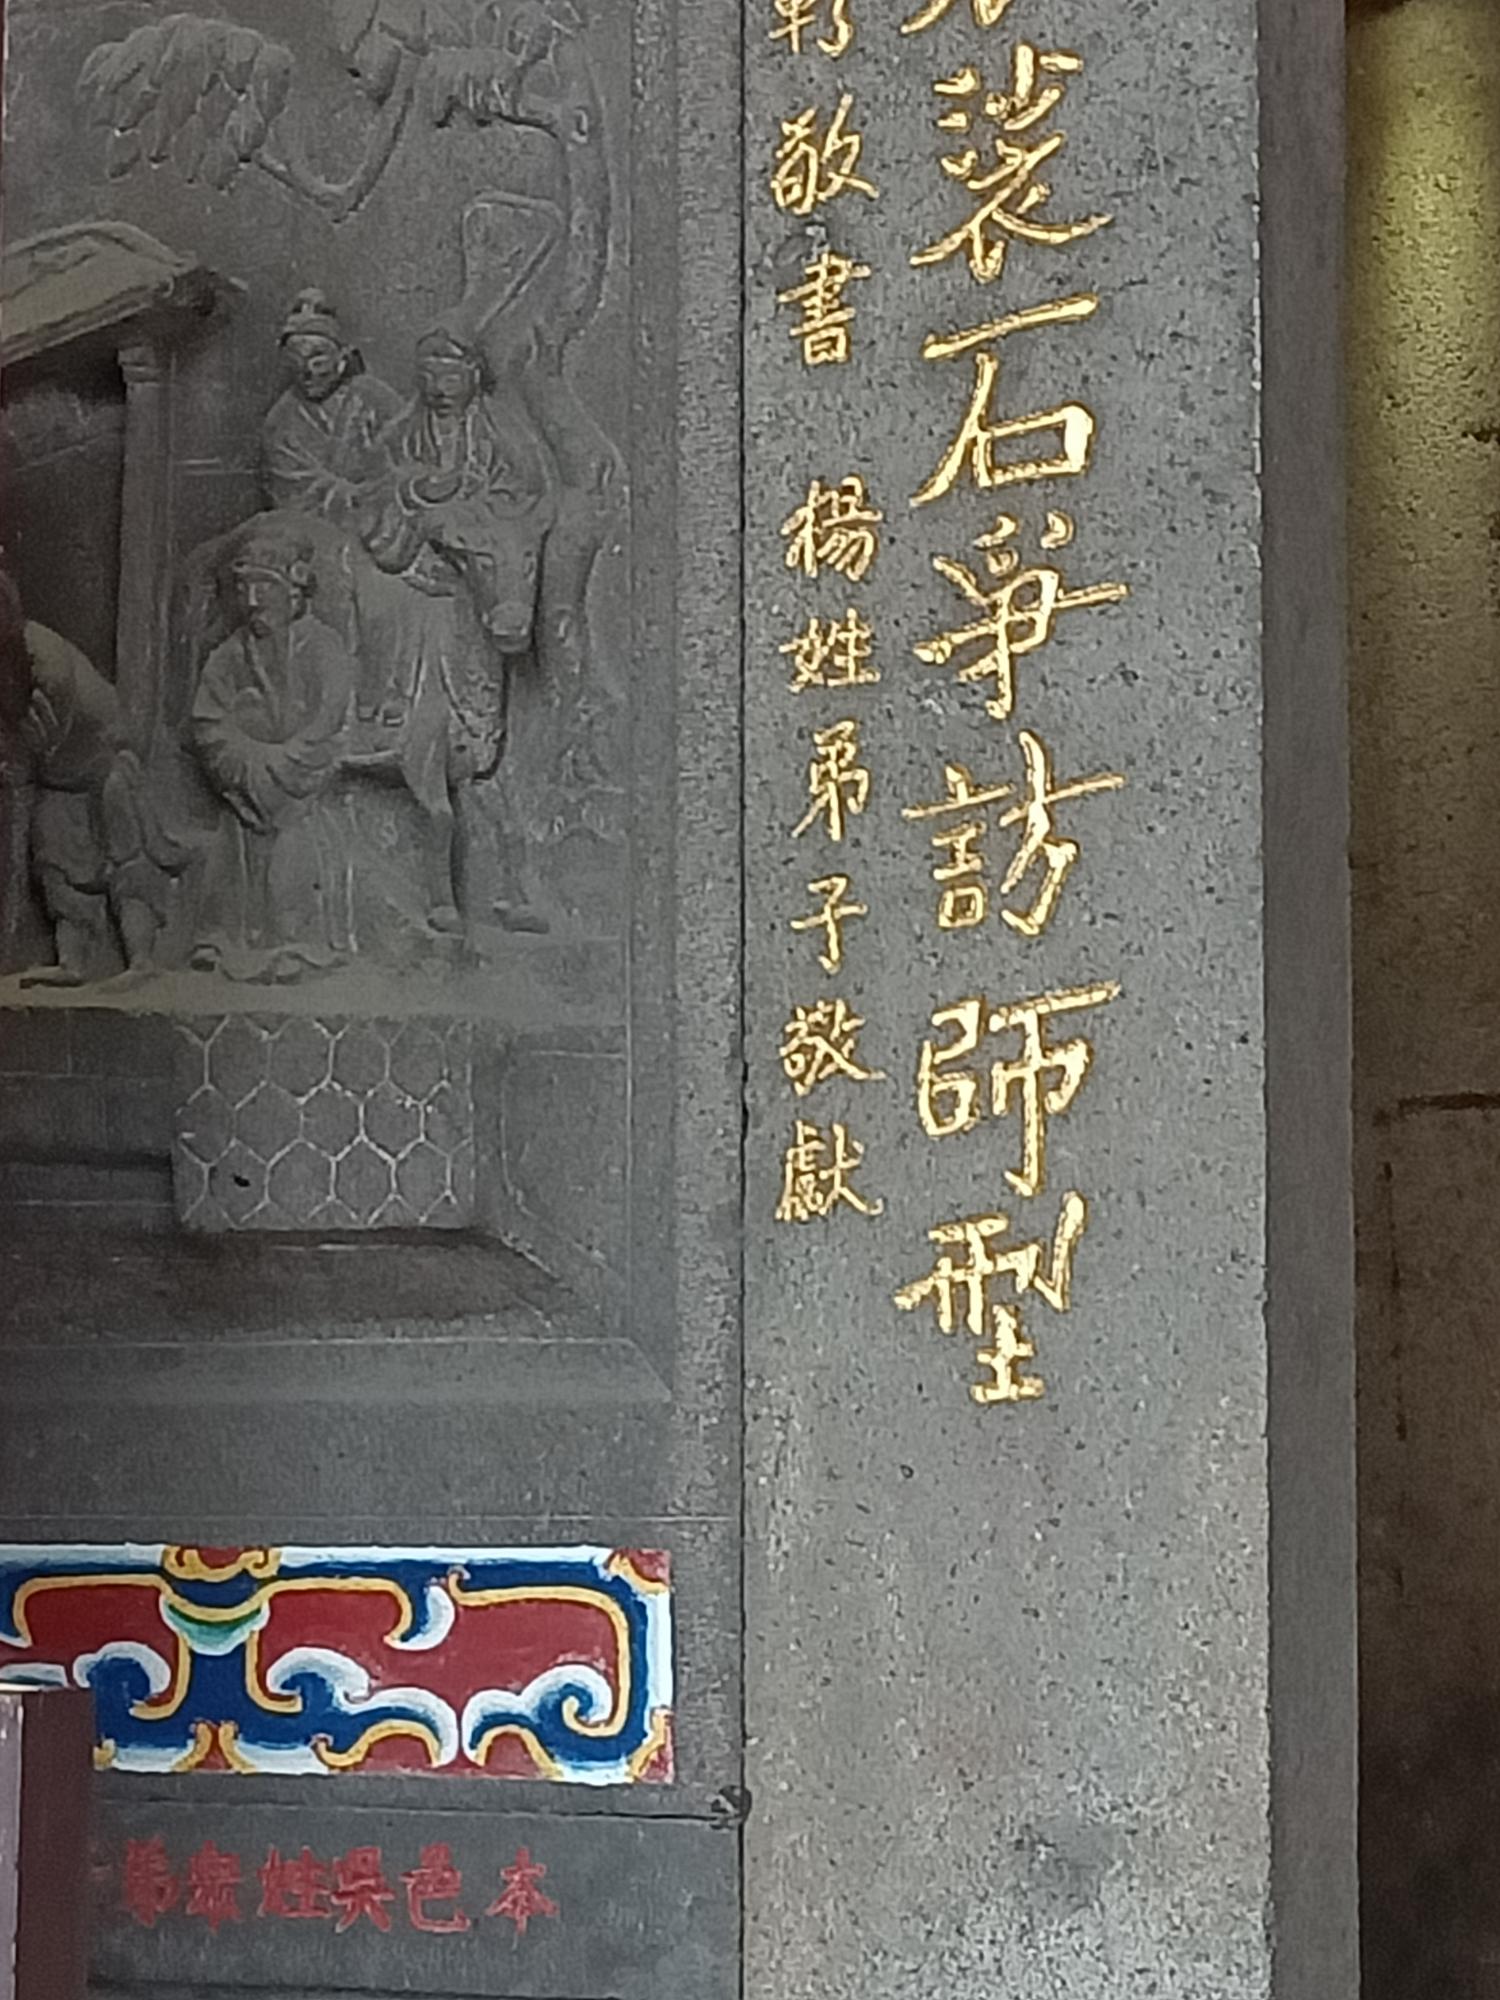 裟石爭訪師型
敬書 楊姓弟子敬獻
本邑吳姓眾弟